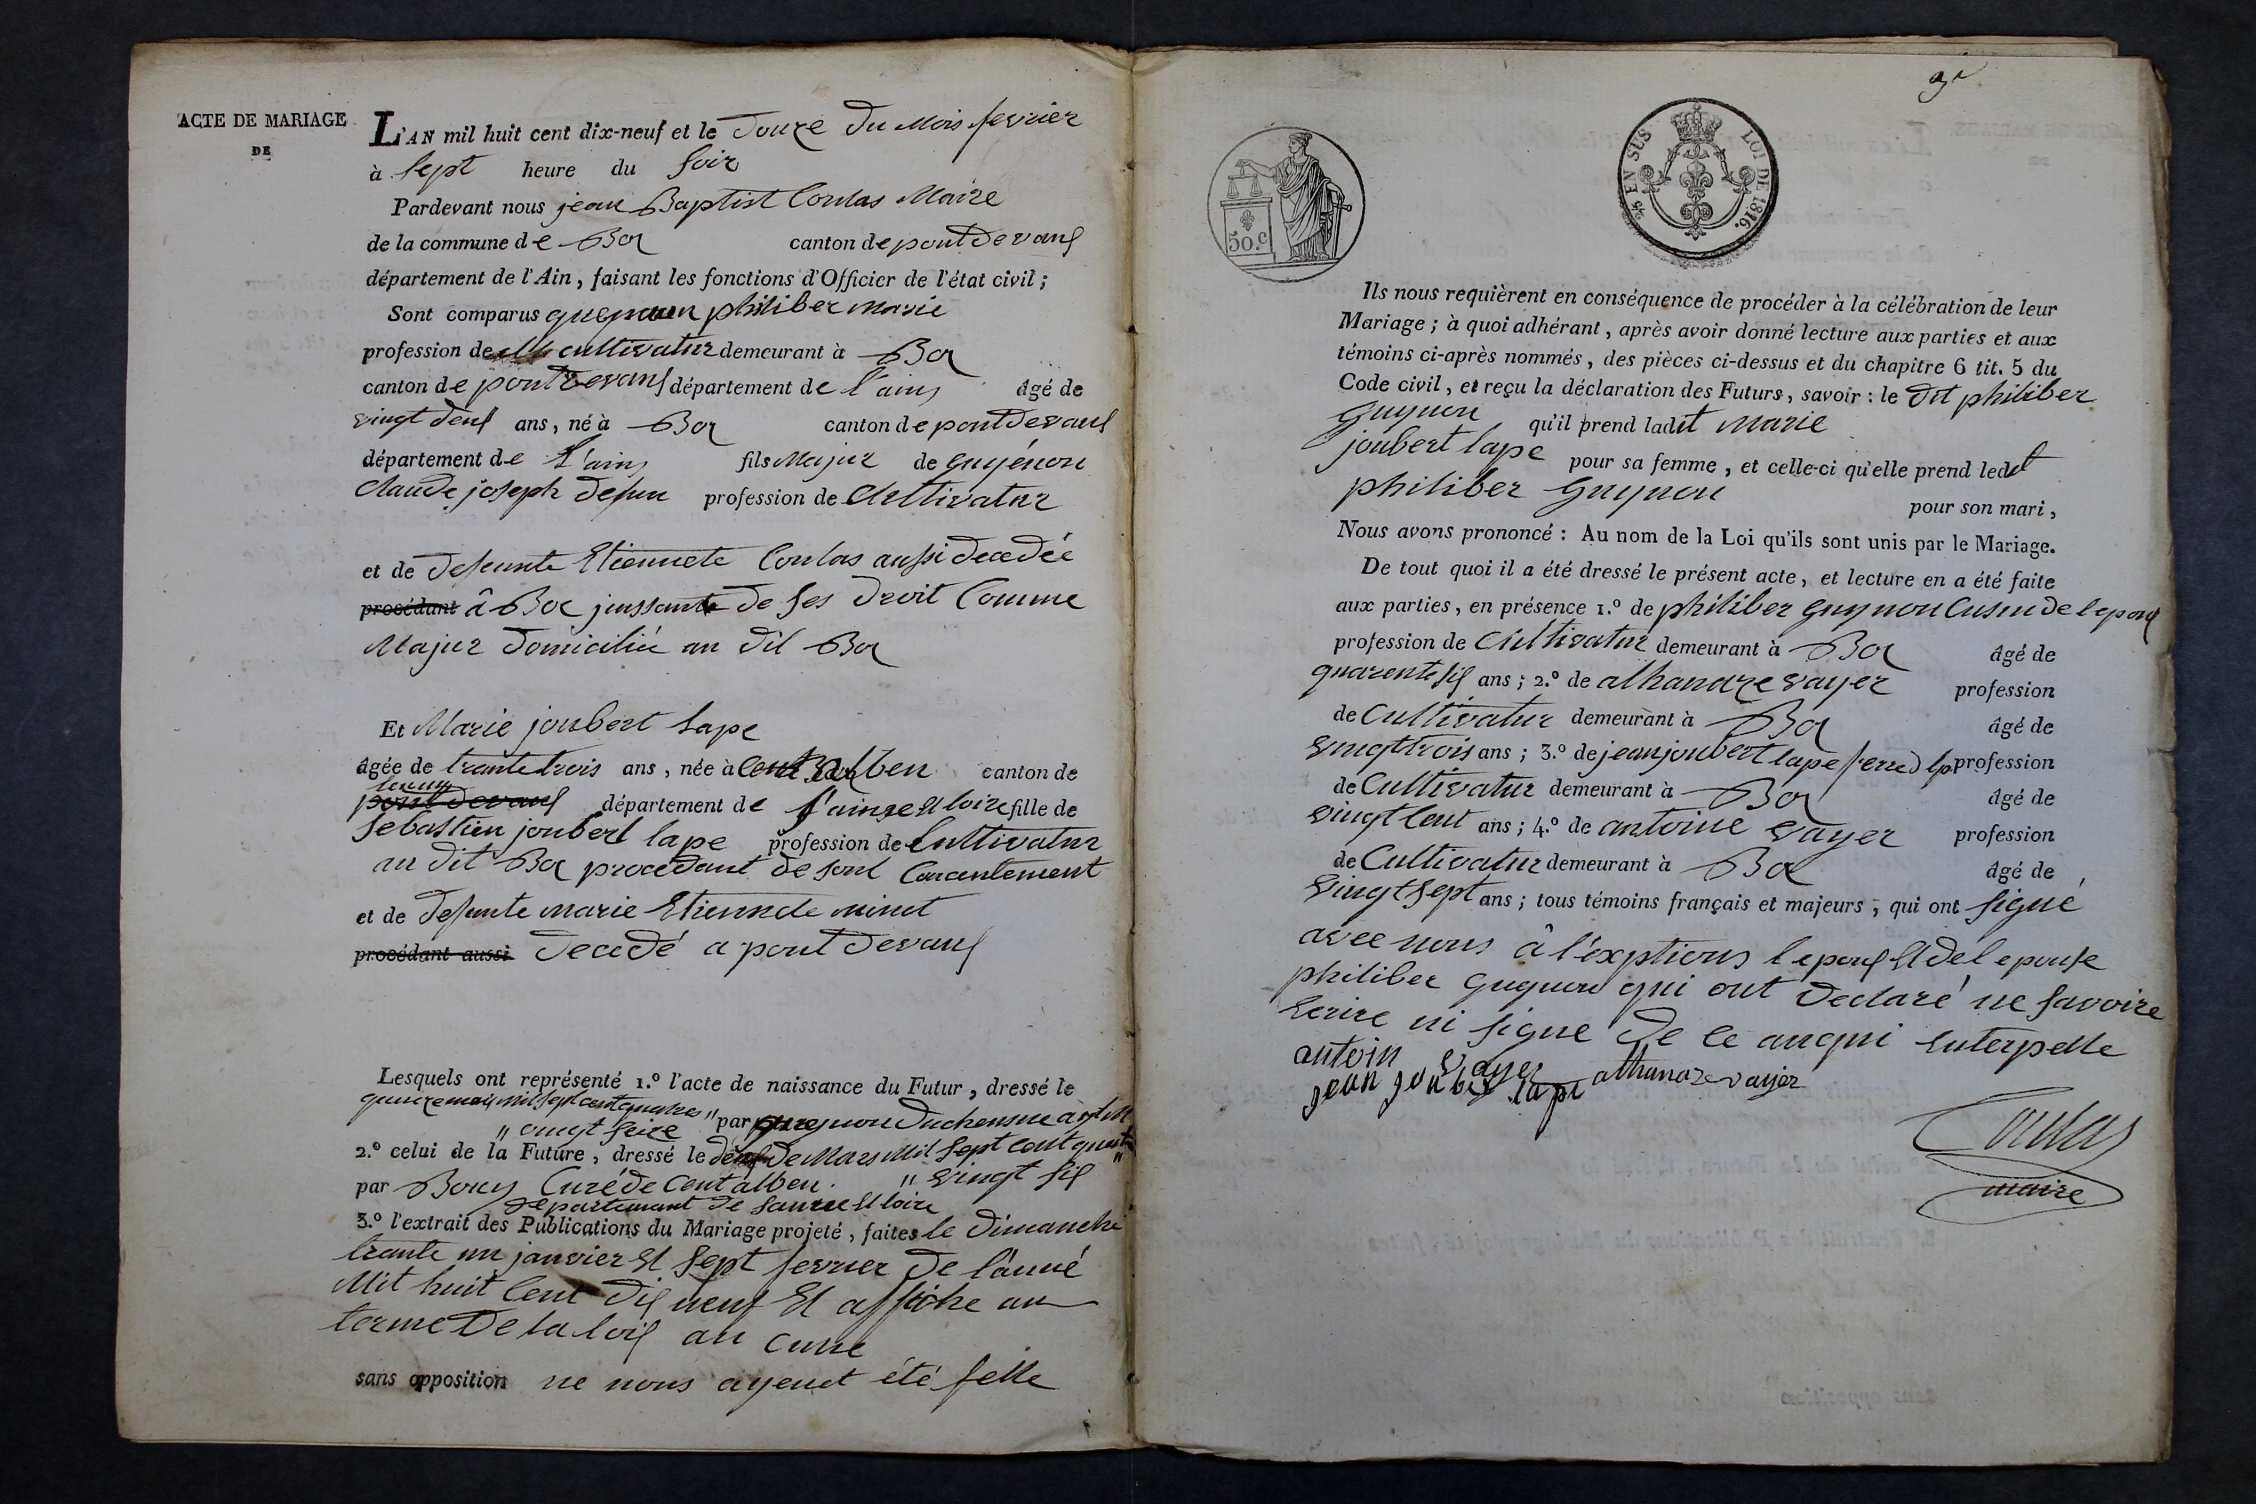 ACTE DE MARIAGE
DE
L'AN mil huit cent dix-neuf et le douze du Mois fevrier
à Sept heure du Soir
Pardevant nous jean Baptist Coulas Maire
de la commune de Boz canton de pontdevaux
département de l'Ain, faisant les fonctions d'Officier de l'état civil;
Sont comparus philiber marie
profession de cultivatur demeurant à Boz
canton de pontdevaux département de l'ains âgé de
vingt deux ans, né à Boz canton de pontdevaux
département de l'ains fils Majur de guyénon
Claude joseph defun profession de Cultivatur
et de defeunte Etiennete Coulas aussi decedée
procédant â Boz juissante de ses droit Comme
Majur domiciliée au dit Boz
Et Marie joubert lape
âgée de trante trois ans, née à Cent alben canton de
pont devaux département de et loire fille de
Sebastien joubert lape profession de Cultivatur
au dit Boz procedant de sont Concentement
et de defunte marie Etiennete minet
procédant aussi decedé a pont devaux
Lesquels ont représenté 1.º l'acte de naissance du Futur, dressé le
quinze mil sept cent quatre
" vingt seize " par Duchensne
2.º celui de la Future, dressé le deux de Mars Mil Sept Cent quatre
par Bouy Curé de Cent alben. " vingt six
departemant de saune et loire
3.º l'extrait des Publications du Mariage projeté, faites le dimanche
trante un janvier et Sept fevrier de l'anné
Mil huit Cent dix neuf et affiche au
terme de la loix au cune
sans opposition ne nous ayenet été fette
50.c
25 EN SUS LOI DE 1816.
Ils nous requièrent en conséquence de procéder à la célébration de leur
Mariage; à quoi adhérant, après avoir donné lecture aux parties et aux
témoins ci-après nommés, des pièces ci-dessus et du chapitre 6 tit. 5 du
Code civil, et reçu la déclaration des Futurs, savoir: le dit philiber
guynon qu'il prend ladit marie
joubert lape pour sa femme, et celle-ci qu'elle prend ledt
philiber guynon pour son mari,
Nous avons prononcé: Au nom de la Loi qu'ils sont unis par le Mariage.
De tout quoi il a été dressé le présent acte, et lecture en a été faite
aux parties, en présence 1.º de philiber guynon Cusin de lepoux
profession de Cultivatur demeurant à Boz âgé de
quarente six ans; 2.º de athanaze vayer profession
de Cultivatur demeurant à Boz âgé de
vingt trois ans; 3.º de jean joubert lape profession
de Cultivatur demeurant à Boz âgé de
vingt Cent ans; 4.º de antoine vayer profession
de Cultivatur demeurant à Boz âgé de
vingt Sept ans; tous témoins français et majeurs, qui ont signé
avec nous â l'éxptions lepoux et de lepouse
philiber guynon qui ont declaré ne savoire
ecrire ni signe de ce anqui enterpelle
antoin vayer
jean joubert lape athanaze vayer
Coulas
maire